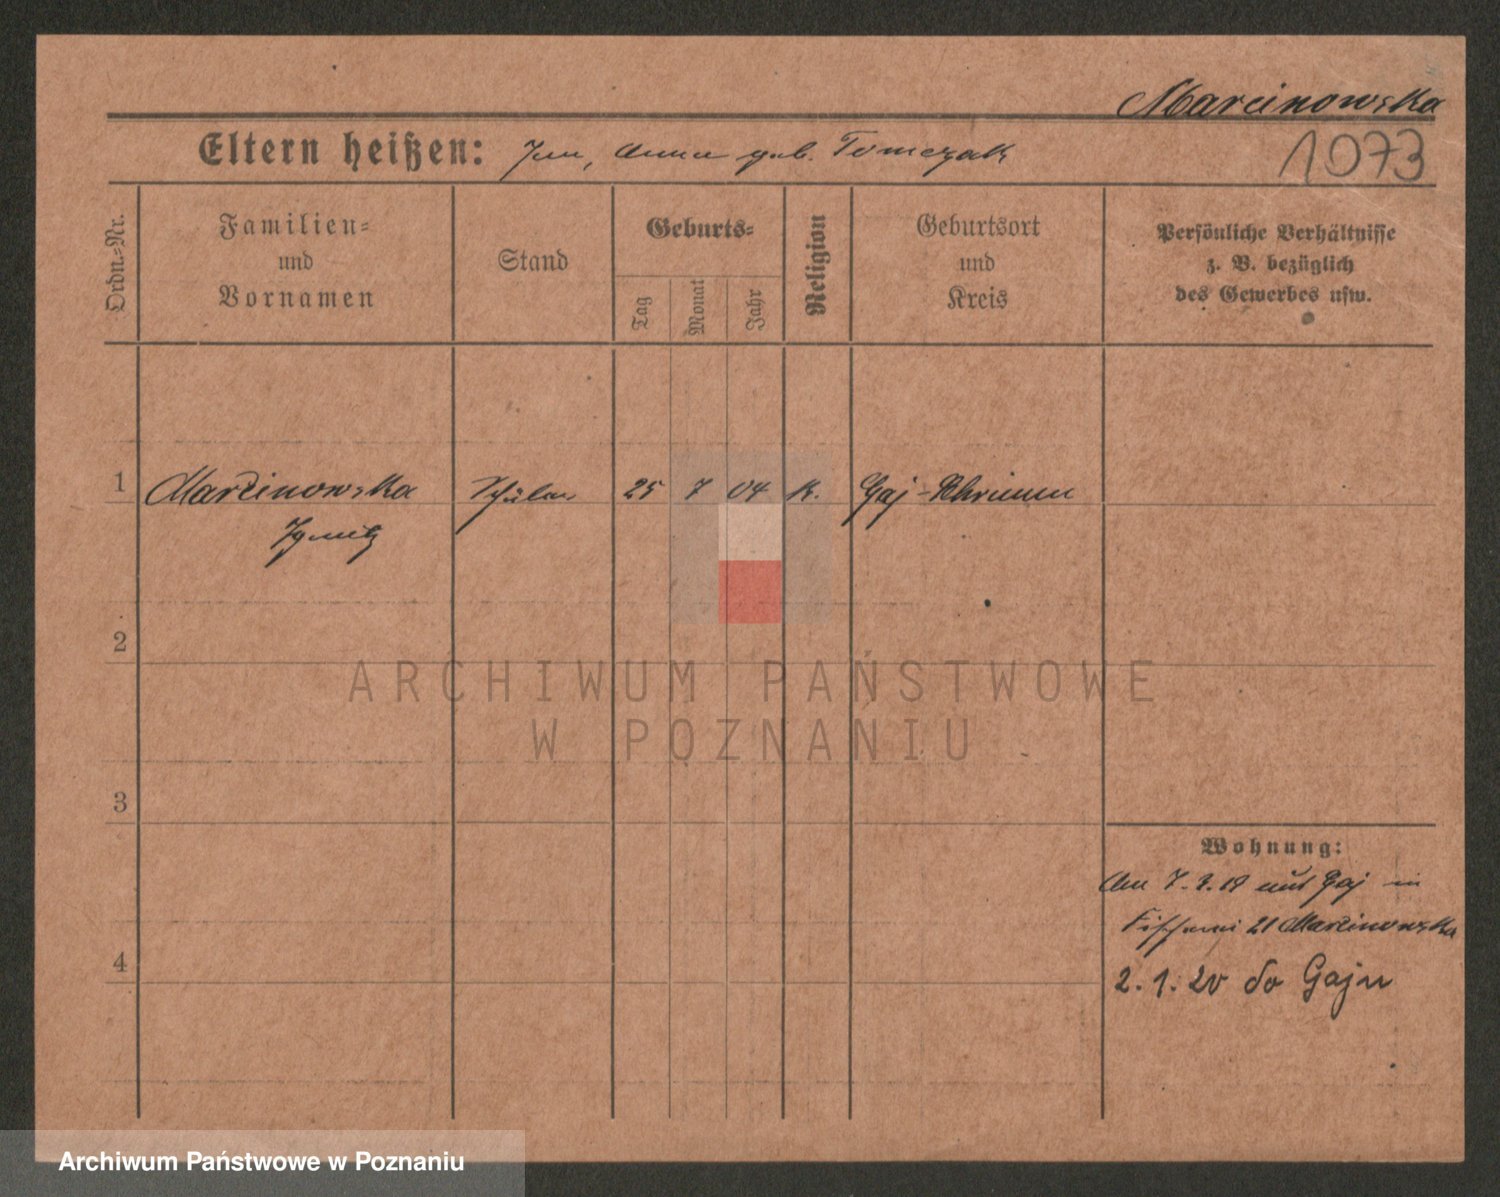 Marcinowska
Eltern heißen: Jan, Anna geb. Tomczak
1073
Ordn.=Nr.
Familien=
und
Vornamen
Stand
Geburts=
Tag
Monat
Jahr
Religion
Geburtsort
und
Kreis
Persönliche Verhältnisse
z. B. bezüglich
des Gewerbes usw.
1 Marcinowska Schüler 25 7 04 k. Gaj - Schrimm
Ignatz
2
3
4
Wohnung:
Am 7.3.18 aus Gaj in
Fischerei 21 Marcinowska
2.1.20 do Gaju
ARCHIWUM PAŃSTWOWE
W POZNANIU
Archiwum Państwowe w Poznaniu